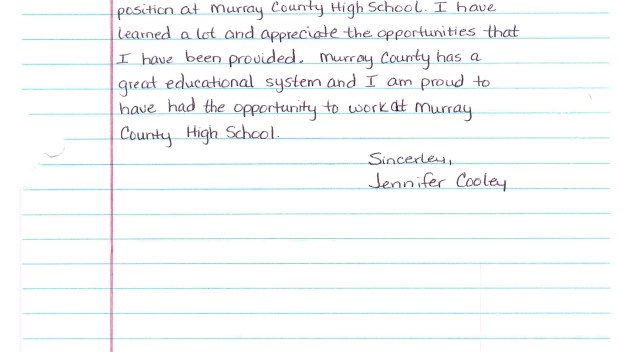 position at Murray County High School. I have
learned a lot and appreciate the opportunities that
I have been provided. Murray County has a
great educational system and I am proud to
have had the opportunity to work at Murray
County High School.
Sincerley,
Jennifer Cooley